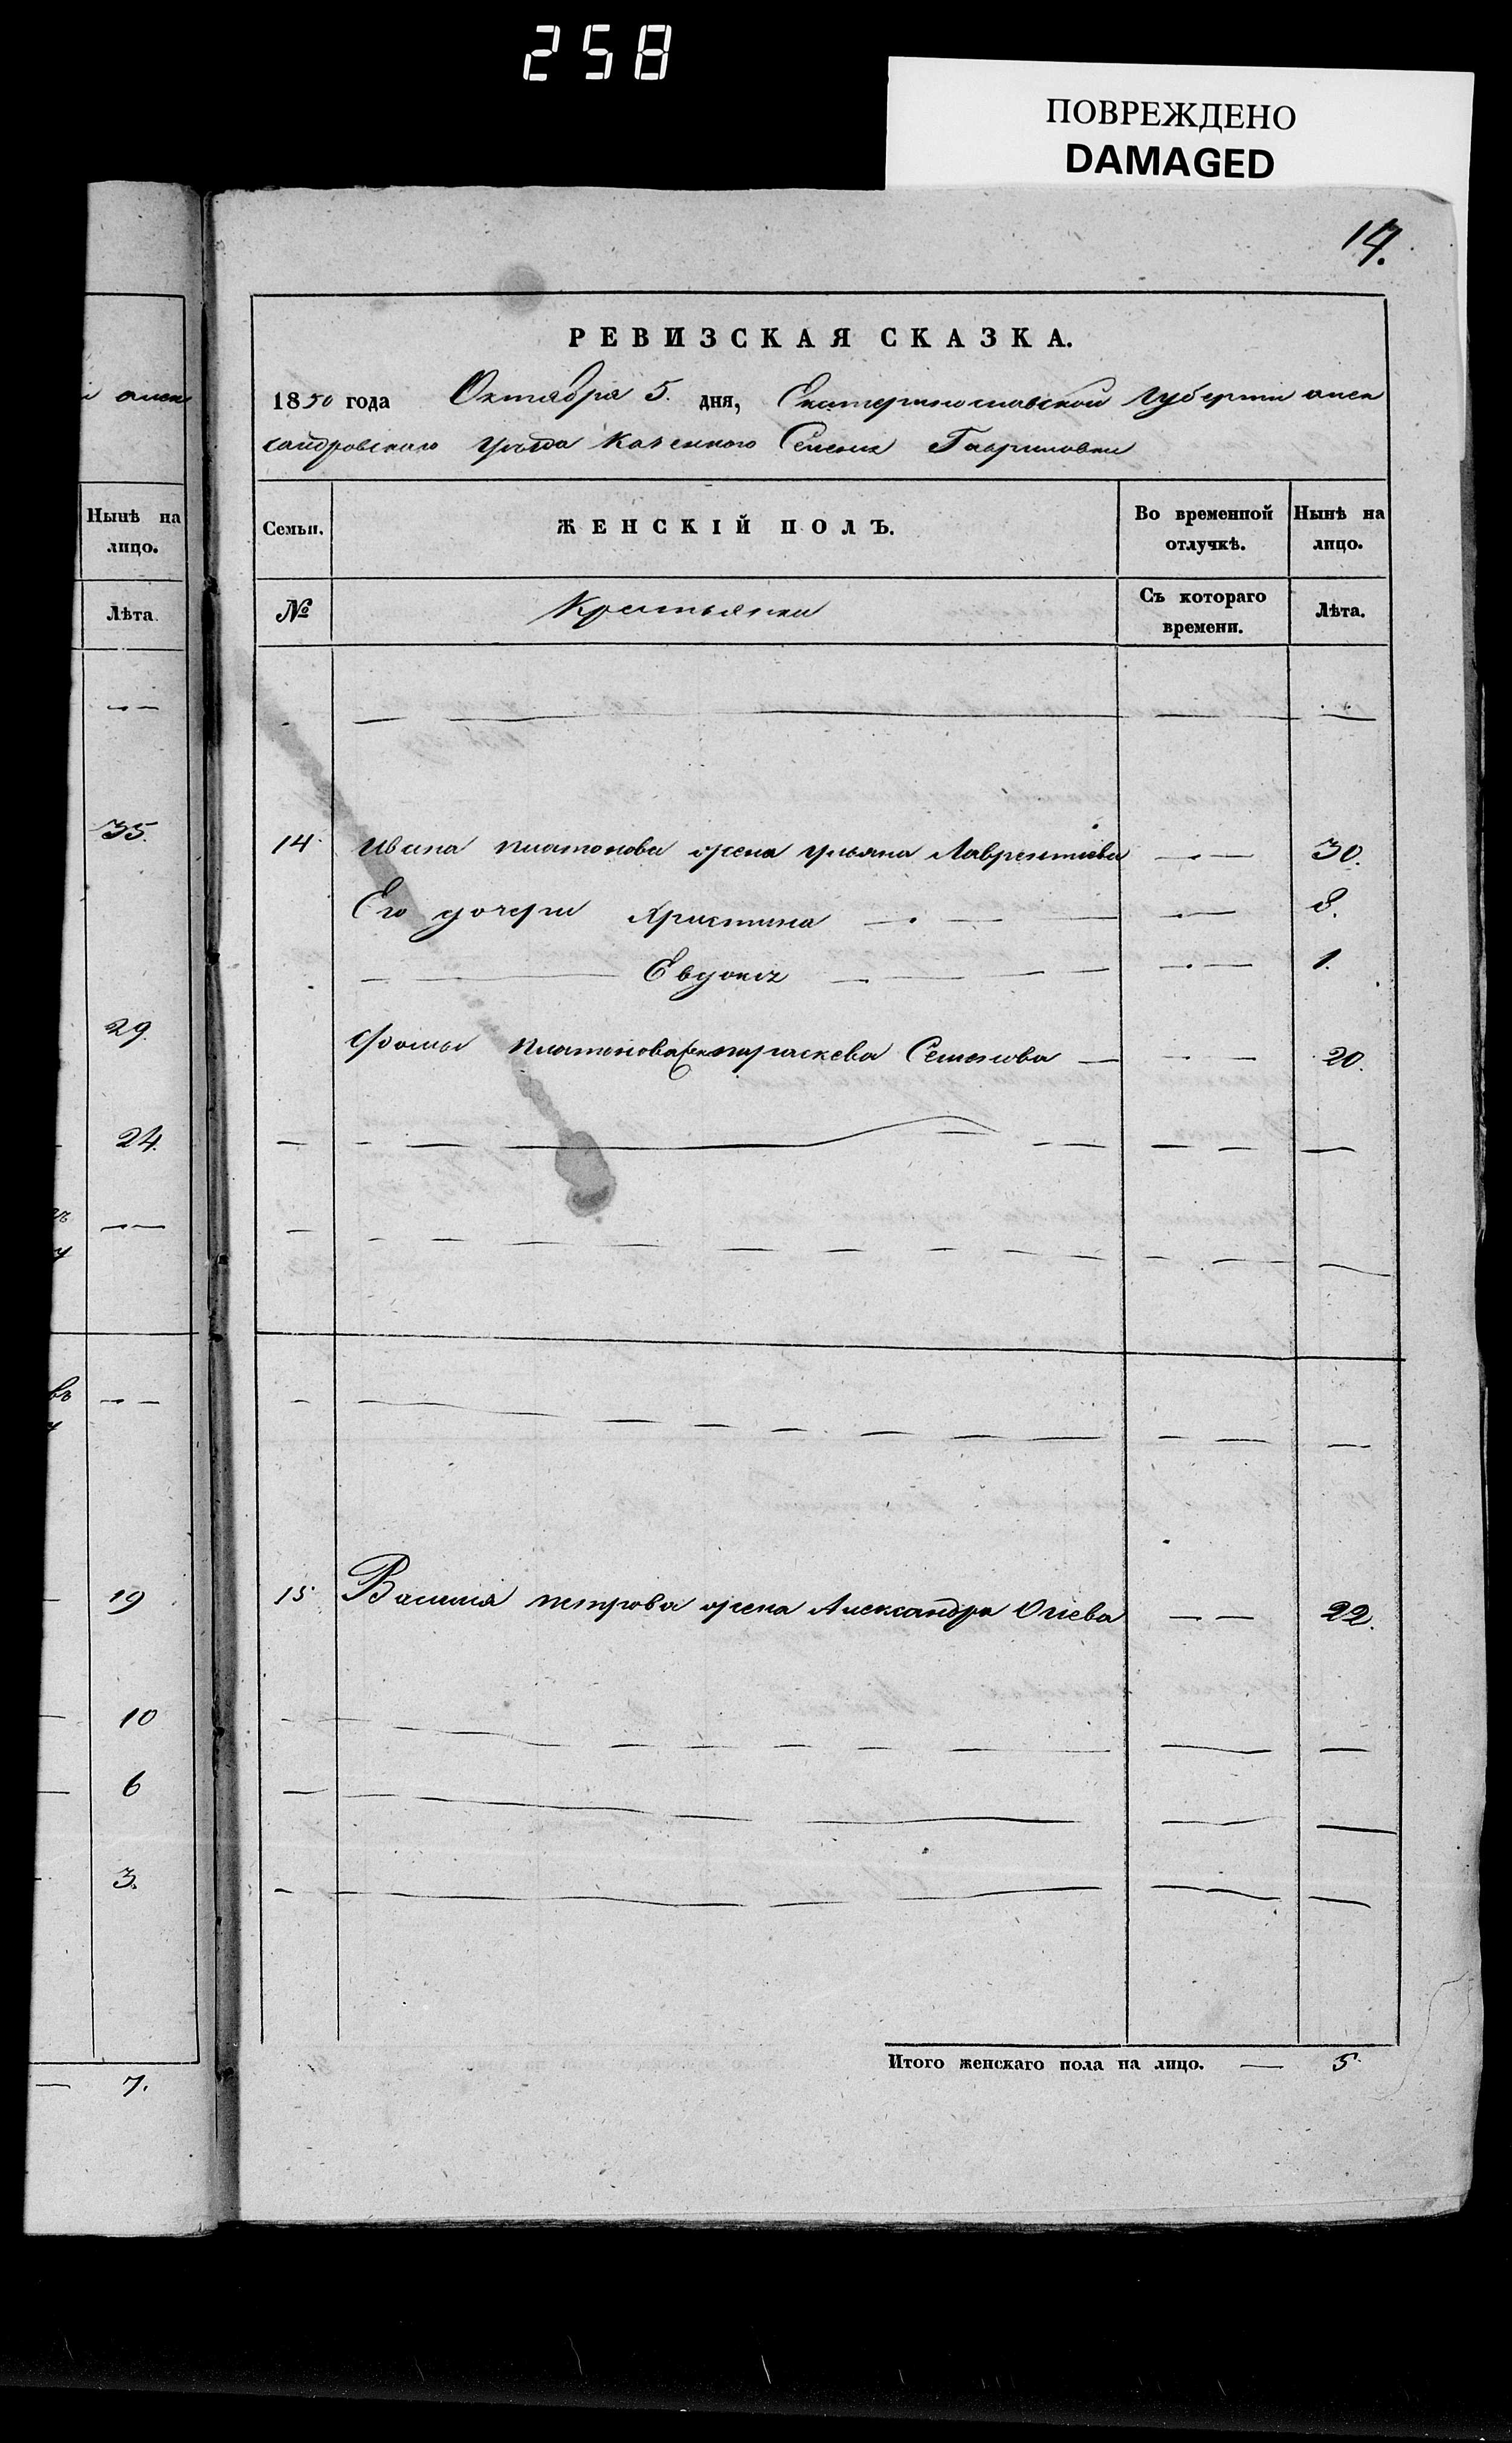 258
ПОВРЕЖДЕНО
DAMAGED
14.
РЕВИЗСКАЯ СКАЗКА.
1850 года Октября 5. дня, Екатеринославской Губерніи Алек
сандровскаго уѣзда Казенного Селенія Гавриловки
Семьи. ЖЕНСКІЙ ПОЛЪ. Во временной отлучкѣ. Нынѣ на лицо.
№ Крестьянки Съ котораго времени. Лѣта.
14 Ивана Платонова жена Ульяна Лаврентіева 30.
Его дочери Христина 8.
Евдокія 1.
Фомы Платонова жена Параскева Семенова 20.
15 Василія Петрова жена Александра 22.
Итого женскаго пола на лицо. 5.
алек
Нынѣ на
лицо.
Лѣта
35.
29.
24.
въ
19
10
6
3.
7.